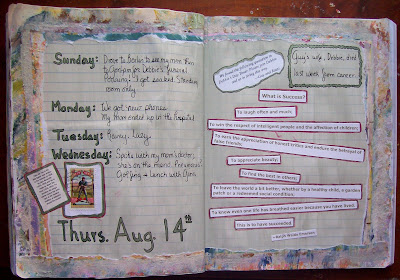 Sunday: Drove to Berlin to see my mom, then
to Gorham for Debbie's funeral.
standing
room only.
Monday: We got new phones.
My mom ended up in the hospital
Tuesday: Rainy, Lazy.
Wednesday: Spoke with my mom's doctor;
she's on the mend. Pneumonia.
Golfing + Lunch with Gina.
Thurs. Aug. 14th
Guy's wife, Debbie, died
last week from cancer.
What is Success?
To laugh often and much;
To win the respect of intelligent people and the affection of children;
To earn the appreciation of honest critics and endure the betrayal of
false friends;
To appreciate beauty;
To find the best in others;
To leave the world a bit better, whether by a healthy child, a garden
patch or a redeemed social condition;
To know even one life has breathed easier because you have lived.
This is to have succeeded.
~ Ralph Waldo Emerson